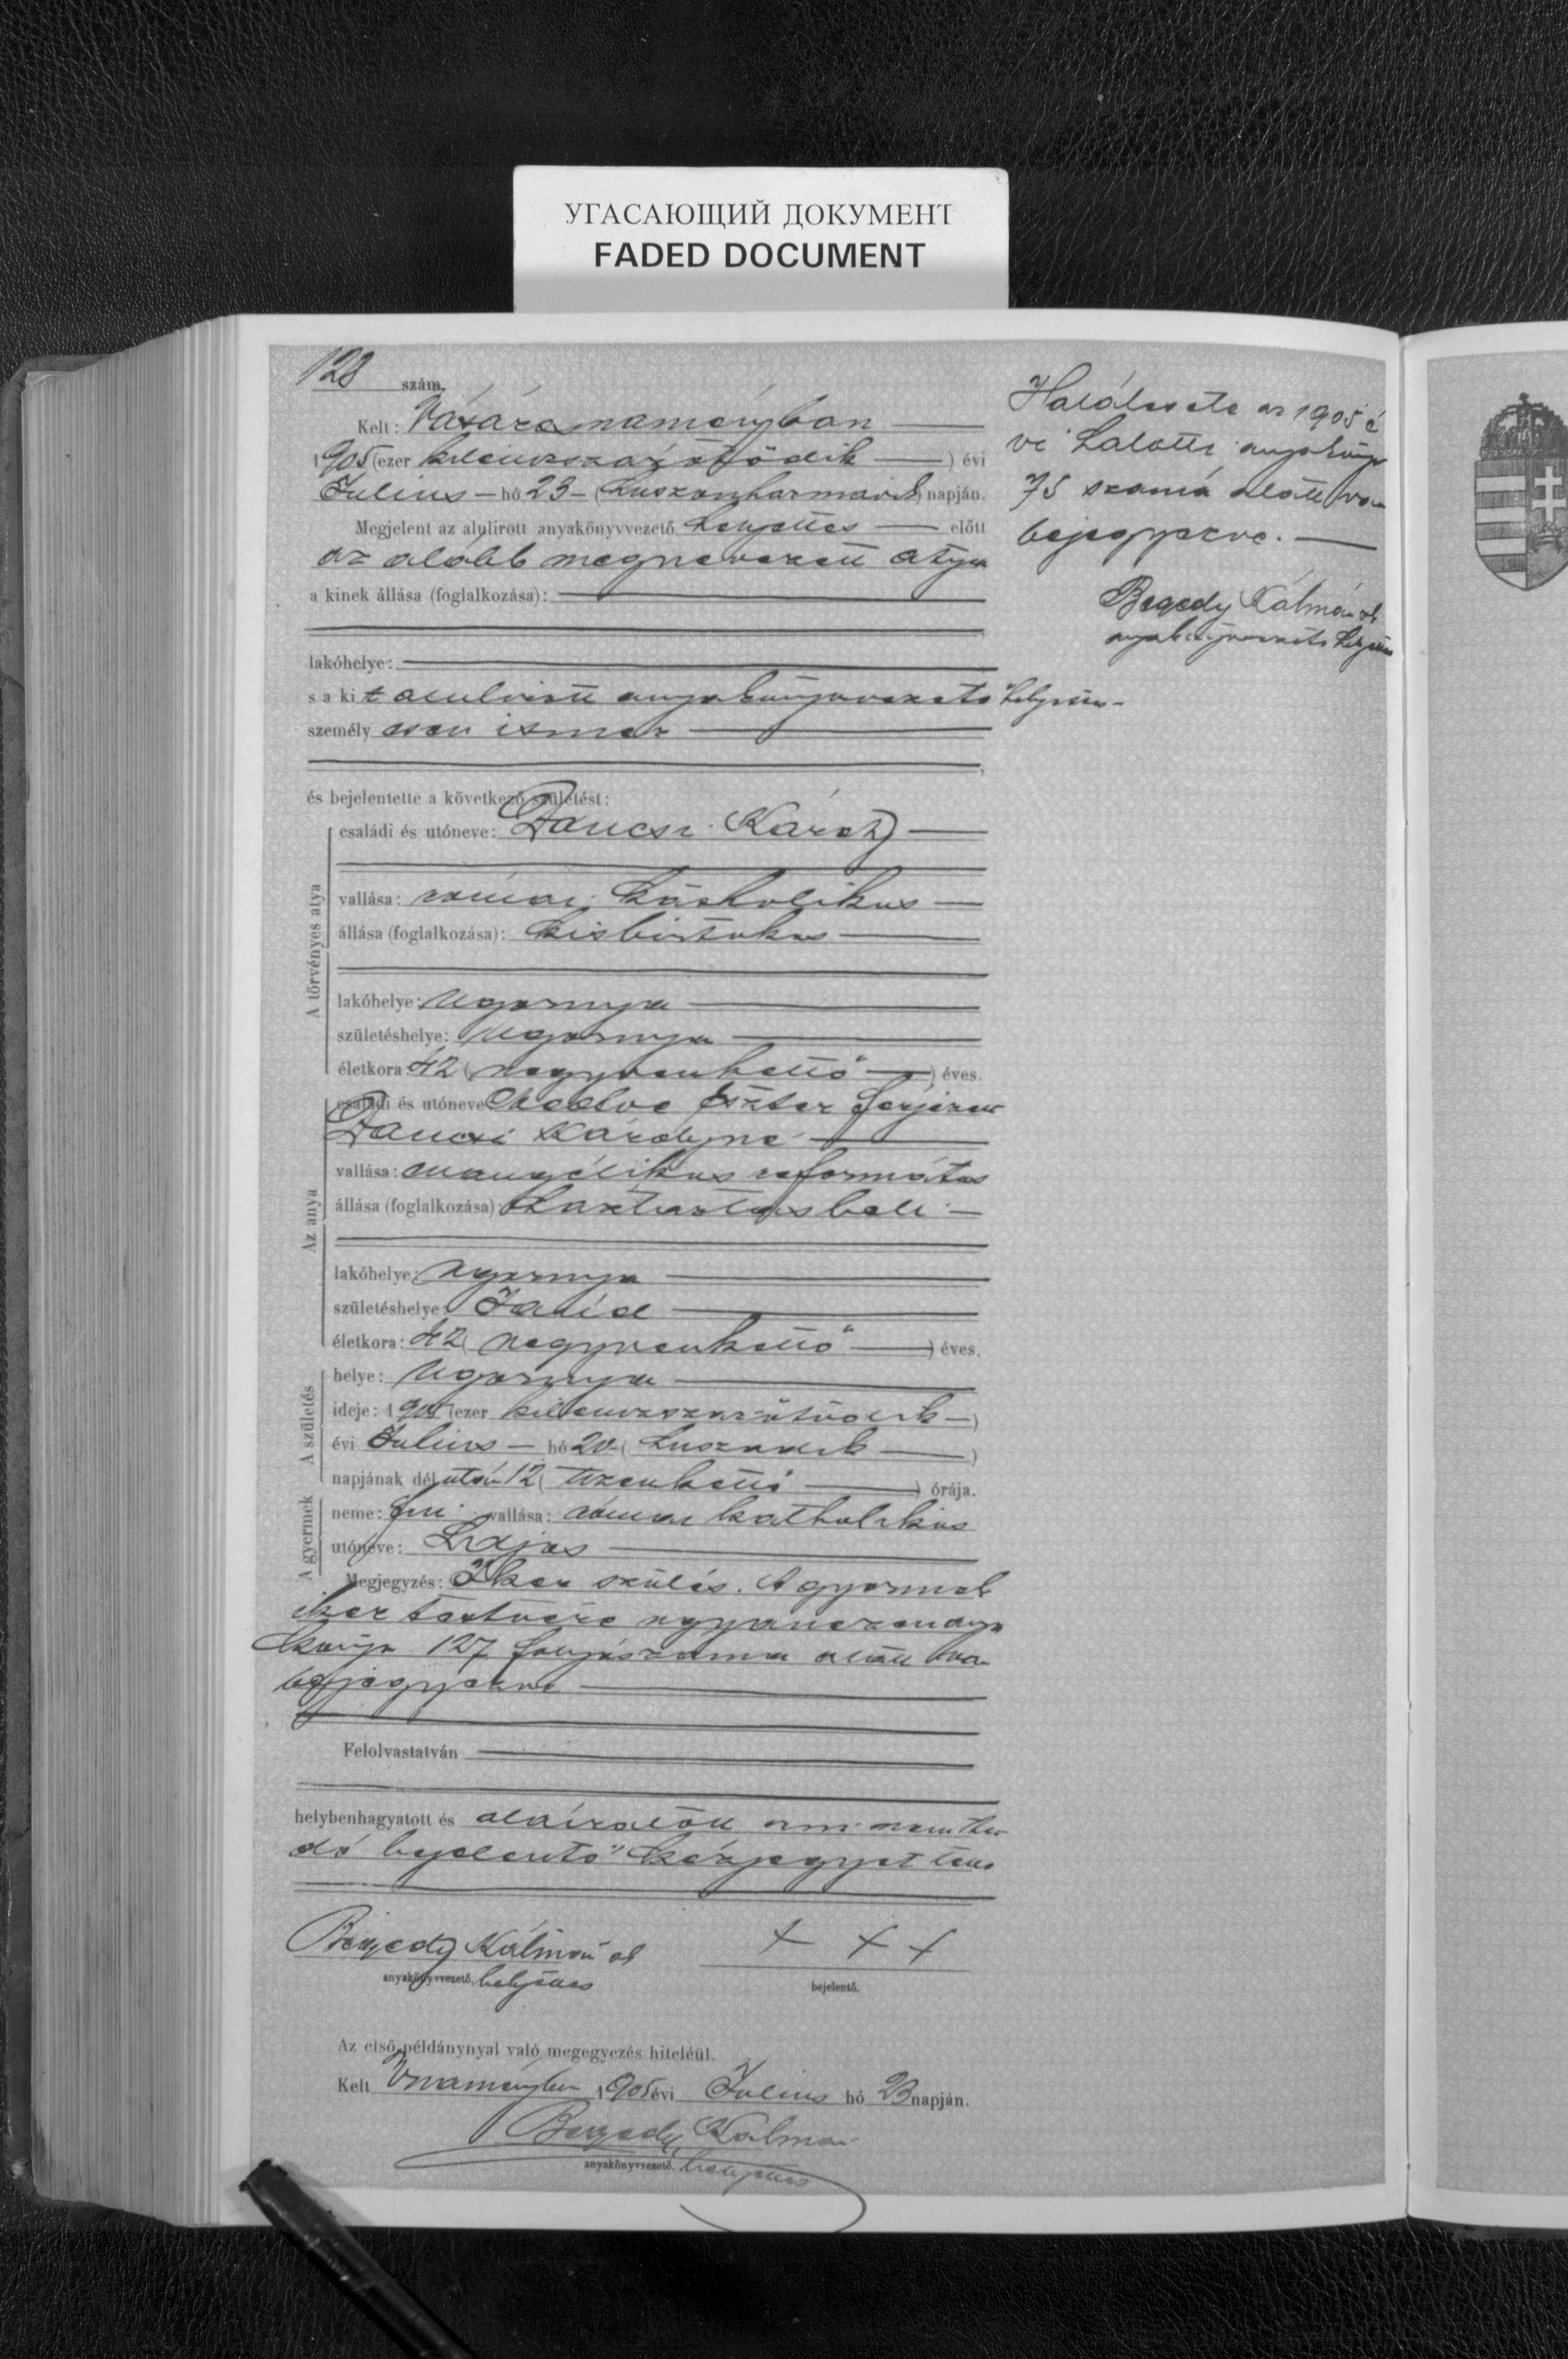 УГАСАЮЩИЙ ДОКУМЕНТ
FADED DOCUMENT
128 szám.
Kelt: Vásárosnaményban
1905 (ezer kilenczszázötödik) évi
Julius hó 23 (huszonharmadik) napján.
Megjelent az alulirott anyakönyvvezető helyettes előtt
az alább megnevezett atya
a kinek állása (foglalkozása):
lakóhelye:
s a kit alulirott anyakönyvvezető helyettes
személyesen ismer
és bejelentette a következő születést:
A törvényes atya
családi és utóneve: Dancsi Károly
vallása: római katholikus
állása (foglalkozása): kisbirtokos
lakóhelye: Ugornya
születéshelye: Ugornya
életkora: 42 (negyvenkettő) éves.
Az anya
családi és utóneve: Eszter férjezett
Dancsi Károlyné
vallása: evangélikus református
állása (foglalkozása): háztartásbeli
lakóhelye: Ugornya
születéshelye: Jánd
életkora: 42 (negyvenkettő) éves.
A születés
helye: Ugornya
ideje: 1905 (ezer kilenczszázötödik)
évi Julius hó 20 (huszadik)
napjának délután 12 (tizenkettő) órája.
A gyermek
neme: fiú vallása: római katholikus
utóneve: Lajos
Megjegyzés: Iker szülés. A gyermek
iker testvére ugyanezen anya
könyv 127 folyószáma alatt van
bejegyezve
Felolvastatván
helybenhagyatott és aláiratott irni nem tu
dó bejelentő kézjegyet tett
Bégedy Kálmán
anyakönyvvezető, helyettes
+ + +
bejelentő.
Az első példánynyal való megegyezés hiteléül.
Kelt Vnaményben 1905 évi Julius hó 23 napján.
Bégedy Kálmán
anyakönyvvezető. helyettes
Halálesete az 1905 é
vi halotti anyakönyv
75 száma alatt van
bejegyezve.
Bégedy Kálmán
anyakönyvvezető helyettes